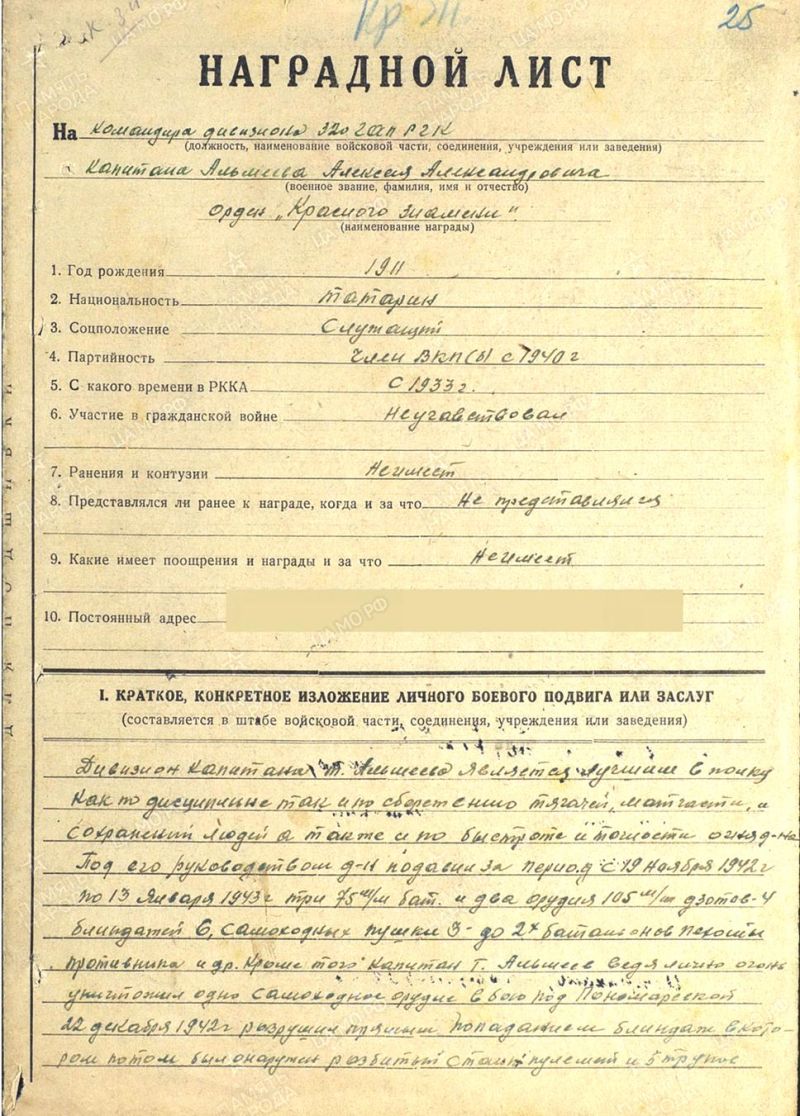 Кр. Зн.
25
НАГРАДНОЙ ЛИСТ
На командира дивизиона 320 гап РГК
(должность, наименование войсковой части, соединения, учреждения или заведения)
Капитана Альмеева Алексея Александровича
(военное звание, фамилия, имя и отчество)
Орден „Красного Знамени"
(наименование награды)
1. Год рождения 1911
2. Национальность татарин
3. Соцположение Служащий
4. Партийность Член ВКП(б) с 1940 г
5. С какого времени в РККА С 1933 г.
6. Участие в гражданской войне Неучавствовал
7. Ранения и контузии Неимеет
8. Представлялся ли ранее к награде, когда и за что Не представлялся
9. Какие имеет поощрения и награды и за что Неимеет
10. Постоянный адрес
I. КРАТКОЕ, КОНКРЕТНОЕ ИЗЛОЖЕНИЕ ЛИЧНОГО БОЕВОГО ПОДВИГА ИЛИ ЗАСЛУГ
(составляется в штабе войсковой части, соединения, учреждения или заведения)
Дивизион капитана т. Альмеева является лучшим в полку
как по дисциплине так и по сбережению тягачей, матчасти, и
сохранений людей а также и по быстроте и точности огня д-на
Под его руководством д-н подавил за период с 19 ноября 1942 г
по 13 января 1943 г три 75 м/м бат. и два орудия 105 м/м дзотов-4
блиндажей 6, самоходных пушки 3 до 2х баталионов пехоты
противника и др. Кроме того капитан т. Альмеев ведя лично огонь
уничтожил одно самоходное орудие в бою под Пономаревкой
22 декабря 1942 г разрушил прямым попаданием блиндаж в кото-
ром потом был обнаружен разбитый пулемет и 5 трупов